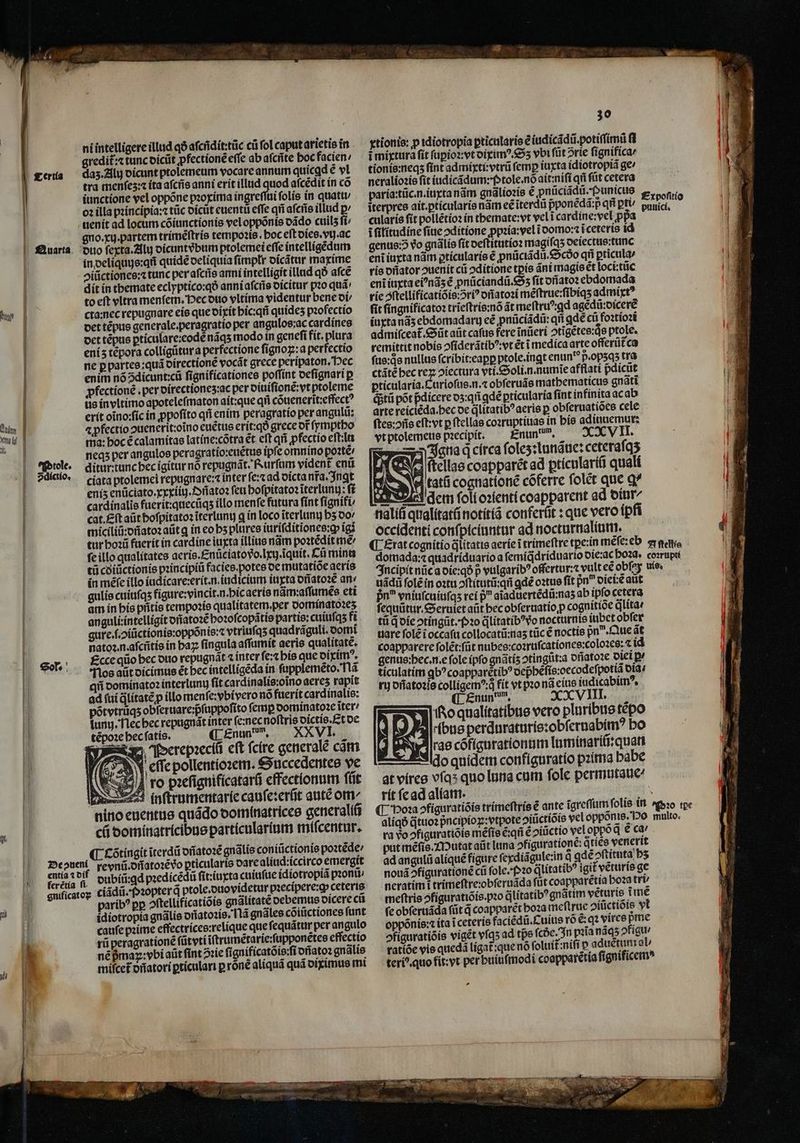 30
ni intelligere illud qð aſcñdit:tũc cũ ſol caput arietis in
gredit̃:⁊ tunc dicũt ꝓfectionẽ eſſe ab aſcñte hoc facien/
Tertia
das. Alij dicunt ptolemeum vocare annum quicqd ẽ vl
tra menſes:⁊ ita aſcñs anni erit illud quod aſcẽdit in cõ
iunctione vel oppõne ꝓxima ingreſſui ſolis in quatu/
oꝛ illa pꝛincipia:⁊ tũc dicũt euentũ eſſe qñ aſcñs illud ꝑ/
uenit ad locum cõiunctionis vel oppõnis dãdo cuilz ſi/
gno.xij.partem trimẽſtris tempoꝛis. hoc eſt dies.vij.ac
Quarta
duo ſexta. Alij dicunt verbum ptolemei eſſe intelligẽdum
in deliquijs:qñ quidẽ deliquia ſimplr̃ dicãtur maxime
ↄiũctiones:⁊ tunc per aſcñs anni intelligit illud qð aſcẽ
dit in themate eclyptico:qð anni aſcñs dicitur ꝓ quã/
to eſt vltra menſem. Hec duo vltima videntur bene di/
cta:nec repugnare eis que dixit hic:qñ quidẽs ꝓfectio
det tẽpus generale.peragratio per angulos:ac cardines
det tẽpus ꝑticulare:eodẽ nãqs modo in geneſi fit. plura
eniʒ tẽpoꝛa colligũtur a perfectione ſignoꝝ: a perfectio
ne ꝑ partes:quã directionẽ vocãt grece peripaton. Nec
enim nõ ↄdicunt:cũ ſignificationes poſſint deſignari ꝑ
ꝓfectionẽ . per directiones:ac per diuiſionẽ:vt ptoleme
us in vltimo apoteleſmaton ait:que qñ cõuenerit:effect⁹
erit oĩno:ſic in ꝓpoſito qñ enim peragratio per angulũ:
⁊ ꝓfectio ↄuenerit:oĩno euẽtus erit:qð grece dr̃ ſymptho
ma: hoc ẽ calamitas latine:cõtra ẽt eſt qñ ꝓfectio eſt:ln
neqs per angulos peragratio:euẽtus ipſe omnino poztẽ/
Ptole.
ↄdictio.
ditur:tunc hec igitur nõ repugnãt. Rurſum vident̃ enũ
ciata ptolemei repugnare:⁊ inter ſe:⁊ ad dicta nr̃a. Inqt
eniʒ enũciato.xxxiij. Dñatoꝛ ſeu hoſpitatoꝛ iterlunij: ſi
cardinalis fuerit:quecũqs illo menſe futura ſint ſignifi/
cat. Eſt aũt hoſpitatoꝛ iterlunij ꝗ in loco iterlunij hʒ do/
miciliũ:dñatoꝛ aũt ꝗ in eo hʒ plures iuriſditiones:ꝙ igi
tur hoꝛũ fuerit in cardine iuxta illius nãm poꝛtẽdit mẽ/
ſe illo qualitates aeris. Enũciato ꝟo.lxij.iquit. Cũ minu
tũ cõiũctionis pꝛincipiũ facies.potes de mutatiõe aeris
in mẽſe illo iudicare:erit.n.iudicium iuxta dñatoꝛẽ an/
gulis cuiuſqs figure:vincit.n.hic aeris nãm:aſſumẽs eti
am in his pñtis tempoꝛis qualitatem.per dominatoꝛeʒ
anguli:intelligit dñatoꝛẽ hoꝛoſcopãtis partis: cuiuſqs fi
gure.ſ.ↄiũctionis:oppõnis:⁊ vtriuſqs quadrãguli. domi
natoꝛ.n.aſcñtis in haꝝ ſingula aſſumit aeris qualitatẽ.
Ecce quo hec duo repugnãt ⁊ inter ſe:⁊ his que dixim⁹.
Sol᷒.
Nos aũt dicimus ẽt hec intelligẽda in ſupplemẽto. Nã
qñ dominatoꝛ interlunij fit cardinalis:oĩno aereʒ rapit
ad ſui q̃litatẽ ꝑ illo menſe:vbi vero nõ fuerit cardinalis:
põt vtrũqs obſeruare:p̃ſuppoſito ſemꝑ dominatoꝛe iter/
lunij. Nec hec repugnãt inter ſe:nec noſtris dictis. Et de
tẽpoꝛe hec ſatis. ¶ Enun^tum. XXVI.
Perepꝛeciũ eſt ſcire generalẽ cãm
eſſe pollentioꝛem. Succedentes ve
ro pꝛeſignificatarũ effectionum ſũt
inſtrumentarie cauſe:erũt autẽ om/
nino euentus quãdo dominatrices generaliũ
cũ dominatricibus particularium miſcentur.
¶ Cõtingit iterdũ dñatoꝛẽ gnãlis coniũctionis poꝛtẽde/
Deↄueni
entia ⁊ dif
ferẽtia ſi
gnificatoꝝ
reynũ.dñatoꝛẽ ꝟo ꝑticularis dare aliud:iccirco emergit
dubiũ:qd pꝛedicẽdũ ſit:iuxta cuiuſue idiotropiã pꝛonũ/
ciãdũ. Pꝛopter q̃ ptole. duo videtur pꝛecipere:ꝙ ceteris
parib⁹ ꝓp ↄſtellificatiõis gnãlitatẽ debemus dicere cũ
idiotropia gnãlis dñatoꝛis. Nã gnãles cõiũctiones ſunt
cauſe pꝛime effectrices:relique que ſequũtur per angulo
rũ peragrationẽ ſũt vti iſtrumẽtarie:ſupponẽtes effectio
nẽ p̃maꝝ:vbi aũt ſint ↄꝛie ſignificatõis:ſi dñatoꝛ gnãlis
miſcet̃ dñatori ꝑticulari ꝑ rõnẽ aliquã quã diximus mi
xtionis: ꝑ idiotropia ꝑticularis ẽ iudicãdũ. potiſſimũ ſi
i mixtura ſit ſupioꝛ:vt dixim⁹. Sʒ vbi ſũt ↄrie ſignifica/
tionis:neqs ſint admixti:vtrũ ſemꝑ iuxta idiotropiã ge/
neralioꝛis ſit iudicãdum: Ptole. nõ ait:niſi qñ ſũt cetera
paria:tũc.n.iuxta nãm gnãlioꝛis ẽ ꝓnũciãdũ. Punicus
Expoſitio
punici.
iterpres ait.ꝑticularis nãm eẽ iterdũ p̃ponẽdã:p̃ qñ ꝑti/
cularis ſit pollẽtioꝛ in themate:vt vel i cardine:vel ꝓpa
i ſilitudine ſiue ↄditione ꝓpꝛia:vel i domo:⁊ i ceteris id
genus:Ɔ ꝟo gnãlis ſit deſtitutioꝛ magiſqs deiectus:tunc
eni iuxta nãm ꝑticularis ẽ ꝓnũciãdũ. Scðo qñ ꝑticula/
ris dñator ↄuenit cũ ↄditione tpis ãni magis ẽt loci:tũc
eni iuxta ei⁹ nãʒ ẽ ꝓnũciandũ. Sʒ ſit dñatoꝛ ebdomada
rie ↄſtellificatiõis:ↄri⁹ dñatoꝛi mẽſtrue:ſibiqs admixt⁹
ſit ſingnificatoꝛ trieſtris:nõ ãt meſtru⁹:qd agẽdũ:dicerẽ
iuxta nãs ebdomadarij eẽ ꝓnũciãdũ: qñ qdẽ cũ foꝛtioꝛi
admiſceat̃. Sũt aũt caſus fere inũeri ↄtigẽtes:q̃s ptole.
remittit nobis ↄſiderãtib⁹:vt ẽt i medica arte offerũt̃ ca
ſus:q̃s nullus ſcribit:eapp ptole.inqt enun^to p̃.opʒqs tra
ctãtẽ hec reꝝ ↄiectura vti. Soli.n.numĩe afflati p̃dicũt
ꝑticularia. Curioſus.n.⁊ obſeruãs mathematicus gnãti
q̃tũ põt p̃dicere dʒ:qñ qdẽ ꝑticularia ſint infinita ac ab
arte reiciẽda.hec de q̃litatib⁹ aeris ꝑ obſeruatiões cele
ſtes:ↄñs eſt:vt ꝑ ſtellas coꝛruptiuas in his adiuuemur:
vt ptolemeus pꝛecipit. Enun^tum. XXVII.
Igna q̃ circa ſoleʒ:lunãue: ceteraſqs
ſtellas coapparẽt ad ꝑticulariũ quali
tatũ cognationẽ cõferre ſolẽt que q⁹
dem ſoli oꝛienti coapparent ad diur/
naliũ qualitatũ notitiã conferũt : que vero ipſi
occidenti conſpiciuntur ad nocturnalium.
¶ Erat cognitio q̃litatis aerie i trimeſtre tpe:in mẽſe: eb
ꝫ ſtellis
corrupti
uis.
domada:⁊ quadriduario a ſemiq̃driduario die:ac hoꝛa.
Incipit nũc a die:qð p̃ vulgarib⁹ offertur:⁊ vult eẽ obſeꝝ
uãdũ ſolẽ in oꝛtu ↄſtitutũ:qñ qdẽ oꝛtus ſit p̃n^m diei:ẽ aũt
p̃n^m vniuſcuiuſqs rei p̃^m aiaduertẽdũ:nas ab ipſo cetera
ſequũtur. Seruiet aũt hec obſeruatio ꝑ cognitiõe q̃lita/
tũ q̃ die ↄtingũt. Pꝛo q̃litatib⁹ ꝟo nocturnis iubet obſer
uare ſolẽ i occaſu collocatũ:nas tũc ẽ noctis p̃n^m. Que ãt
coapparere ſolẽt:ſũt nubes:coꝛruſcationes:coloꝛes: ⁊ id
genus:hec.n.e ſole ipſo gnãtis ↄtingũt:a dñatoꝛe diei ꝑ/
ticulatim qb⁹ coapparẽtib⁹ dep̃hẽſis:occodeſpotiã dia/
rij dñatoꝛis colligem⁹:q̃ fit vt ꝓ nã eius iudicabim⁹.
¶ Enun^tum. XXVIII.
Ro qualitatibus vero pluribus tẽpo
ribus perduraturis:obſeruabim⁹ ho
ras cõfigurationum luminariũ:quan
do quidem configuratio pꝛima habe
at vires vſqs quo luna cum ſole permutaue/
rit ſe ad aliam.
Pꝛo tpe
multo.
¶ Hoꝛa ↄfiguratiõis trimeſtris ẽ ante igreſſum ſolis in
aliqð q̃tuoꝛ p̃ncipioꝝ:vtpote ↄiũctiõis vel oppõnis. Ho
ra ꝟo ↄfiguratiõis mẽſis ẽ:qñ ẽ ↄiũctio vel oppõ q̃ ẽ ca/
put mẽſis. Mutat aũt luna ↄfigurationẽ: q̃ties venerit
ad angulũ aliquẽ figure ſexdiãgule:in q̃ qdẽ ↄſtituta hʒ
nouã ↄfigurationẽ cũ ſole. Pꝛo q̃litatib⁹ igit̃ vẽturis ge
neratim i trimeſtre:obſeruãda ſũt coapparẽtia hoꝛa tri/
meſtris ↄfiguratiõis.ꝓ q̃litatib⁹ gnãtim vẽturis i mẽ
ſe obſeruãda ſũt q̃ coapparẽt hoꝛa meſtrue ↄiũctiõis vl
oppõnis:⁊ ita i ceteris faciẽdũ. Cuius rõ ẽ: qꝛ vires p̃me
ↄfiguratiõis vigẽt vſqs ad tp̃s ſcðe. In pꝛia nãqs ↄfigu/
ratiõe vis quedã ligat̃:que nõ ſoluit̃:niſi ꝑ aduẽtum al/
teri⁹.quo fit:vt per huiuſmodi coapparẽtia ſignificem⁹